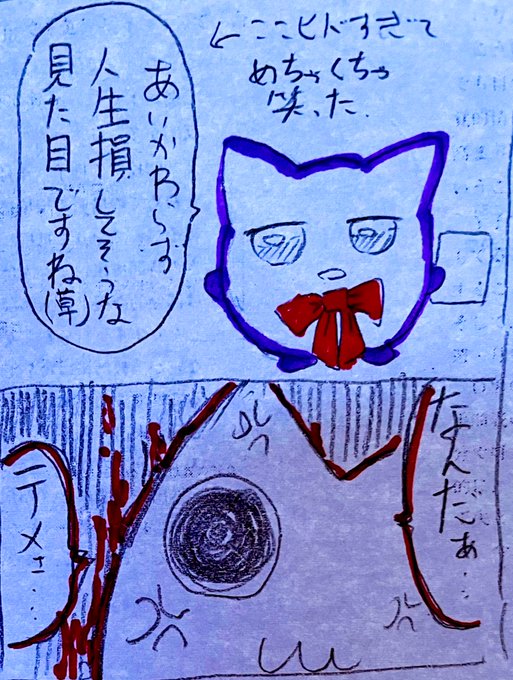 ←ここヒドすぎて
めちゃくちゃ
笑った.
あいかわらず
人生損してそうな
見た目ですね(草)
なんだぁ…
テメェ…